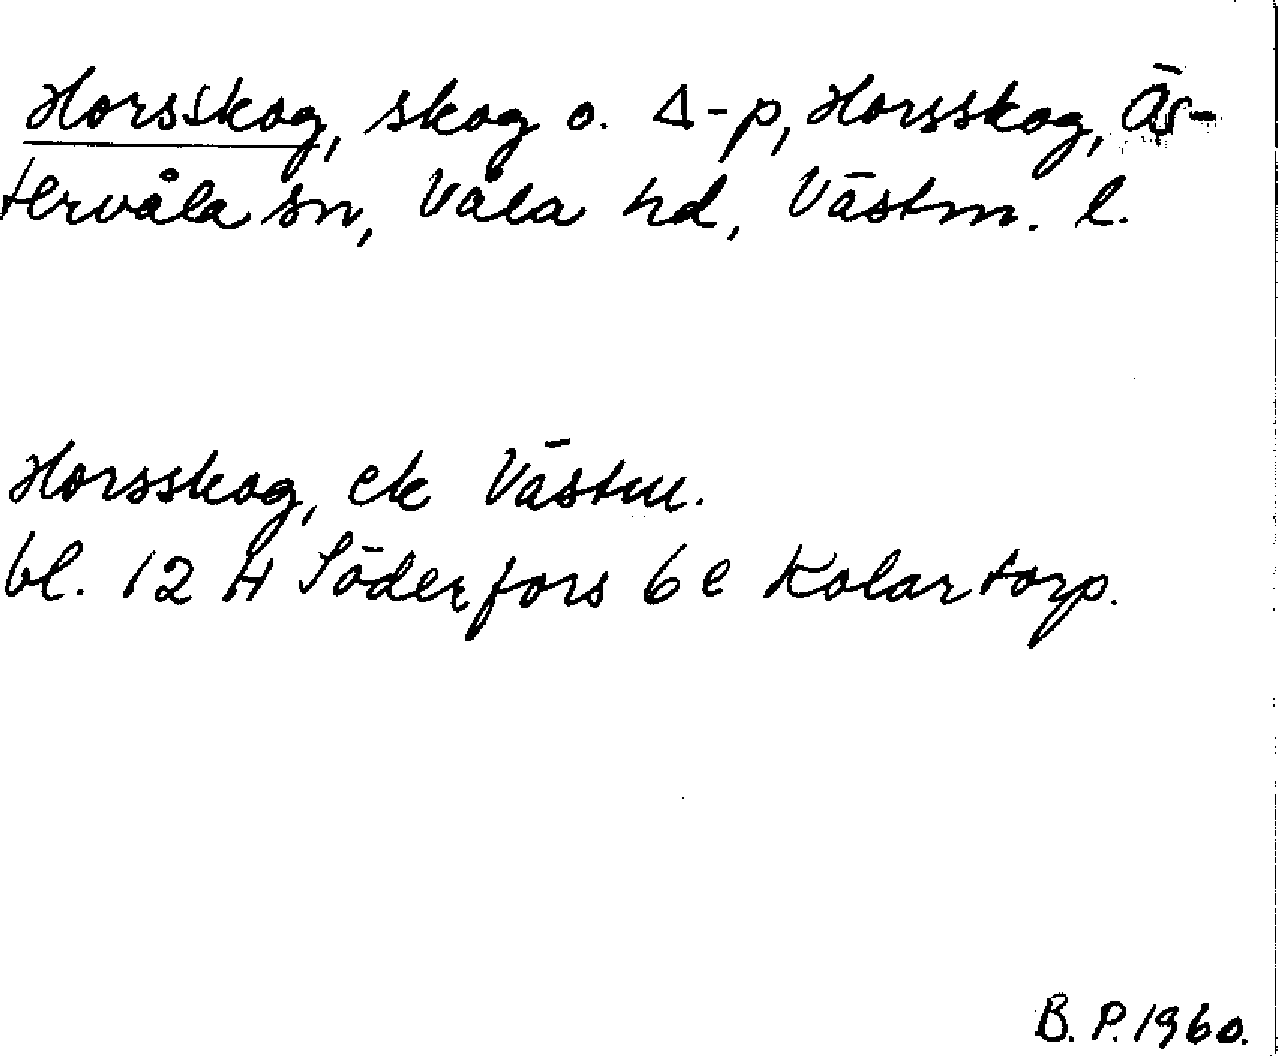 Horsskog, skog o. Δ-p, Horsskog, Äs-
tervåla sn, Våla hd, Västm. l.
Horsskog, ek Västm.
bl. 12 H Söderfors 6 e Kolartorp.
B. P. 1960.